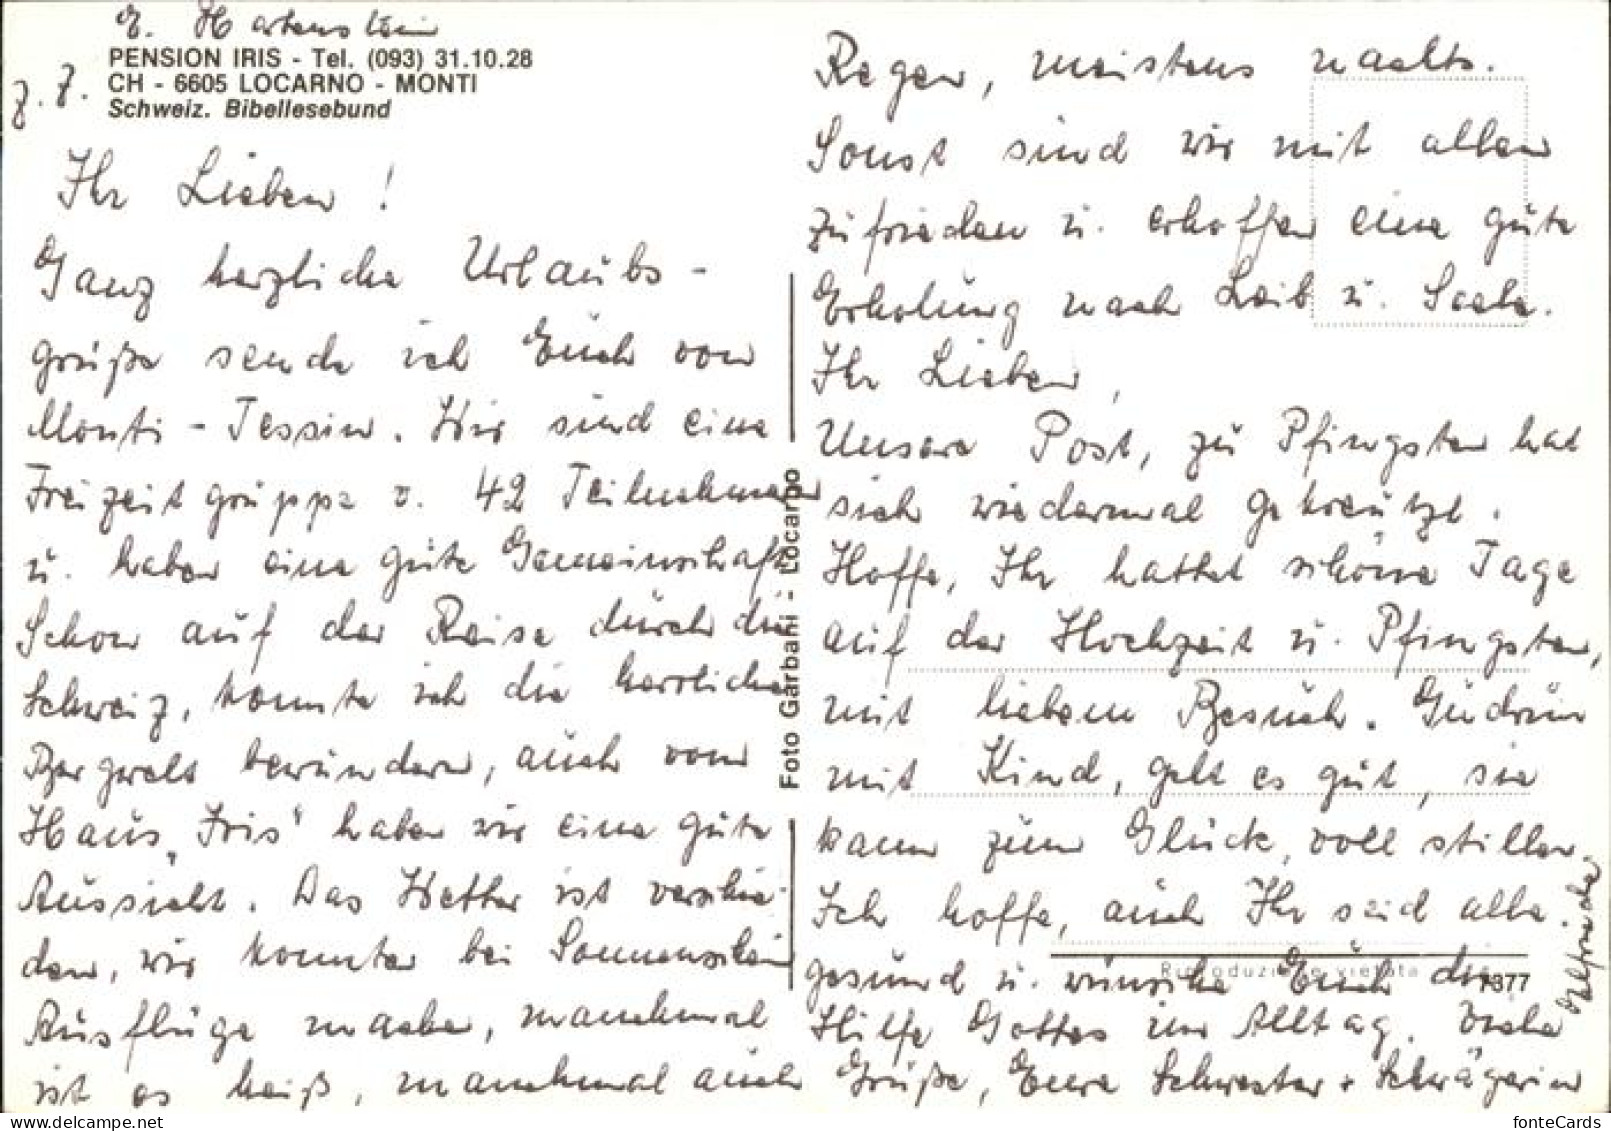 E. Hartenstein
PENSION IRIS - Tel. (093) 31.10.28
z. Z. CH - 6605 LOCARNO - MONTI
Schweiz. Bibellesebund
Ihr Lieben!
Ganz herzliche Urlaubs-
grüße sende ich Euch von
Monti - Tessin. Wir sind eine
Freizeitgruppe v. 42 Teilnehmern
u. haben eine gute Gemeinschaft
Schon auf der Reise durch die
Schweiz, konnte ich die herrliche
Bergwelt bewundern, auch vom
Haus „Iris“ haben wir eine gute
Aussicht. Das Wetter ist verschie-
den, wir konnten bei Sonnenschein
Ausflüge machen, manchmal
ist es heiß, manchmal auch
Foto Garbani - Locarno
Regen, meistens nachts.
Sonst sind wir mit allem
zufrieden u. erhoffen eine gute
Erholung nach Leib u. Seele.
Ihr Lieben,
Unsere Post, zu Pfingsten hat
sich wiedermal gekreutzt.
Hoffe, Ihr hattet schöne Tage
auf der Hochzeit u. Pfingsten,
mit liebem Besuch. Gudrun
mit Kind, geht es gut, sie
kann zum Glück, voll stillen.
Ich hoffe, auch Ihr seid alle
gesund u. wünsche Euch die
Riproduzione vietata 7377
Hilfe Gottes im Alltag. Viele
Grüße, Eure Schwester + Schwägerin
Elfriede
fonteCards